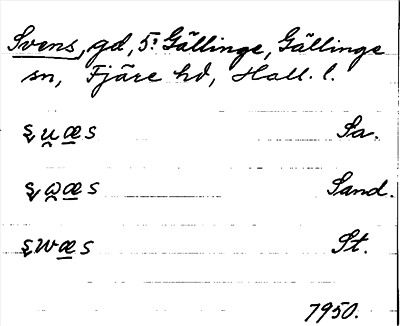 Svens, gd, 5: Gällinge, Gällinge
sn, Fjäre hd, Hall. l.
s̬u̯æ̠s Sa.
s̬ω̯æ̠s Sand.
s̬wæ̠s St.
1950.